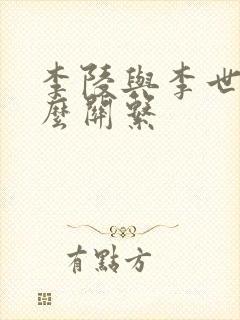 李陵與李世
麼關繫
有點方